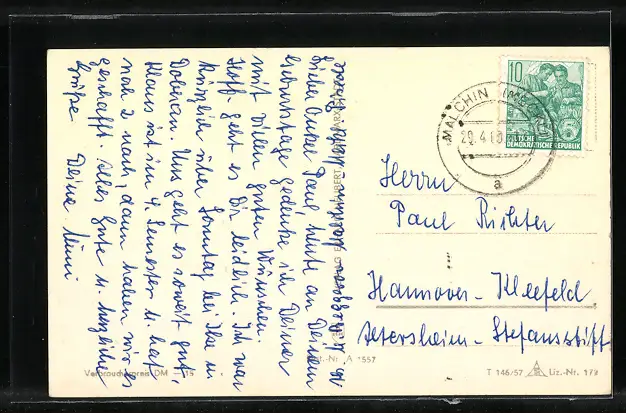 Lieber Onkel Paul, heute an Deinem
Geburtstage gedenke ich Deiner
mit vielen guten Wünschen.
Hoff. geht es Dir leidlich. Ich war
kürzlich über Sonntag bei Ilse in
Doberan. Uns geht es soweit gut,
Klaus ist im 4. Semester u. hat
noch 2 nach, dann haben wir es
geschafft. Alles Gute u. herzliche
Grüße Deine Mimi
MALCHIN (MECKL)
29.4.60
a
10
DEUTSCHE
DEMOKRATISCHE REPUBLIK
Herrn
Paul Richter
Hannover-Kleefeld
Altersheim-Stefansstift
Verbraucherpreis DM -,15
Best.-Nr. A 1557
T 146/57 Liz.-Nr. 179